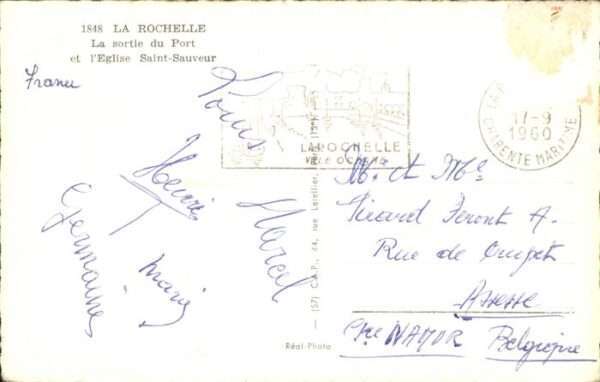 1848 LA ROCHELLE
La sortie du Port
et l'Eglise Saint-Sauveur
France
Louis
Henri
Marcel
Marie
Germaine
LA ROCHELLE
17-9
1960
CHARENTE MARITIME
— (57) C.A.P., 44, rue
Réal-Photo
M. et Mme
Féront A.
Rue de
Assesse
NAMUR Belgique